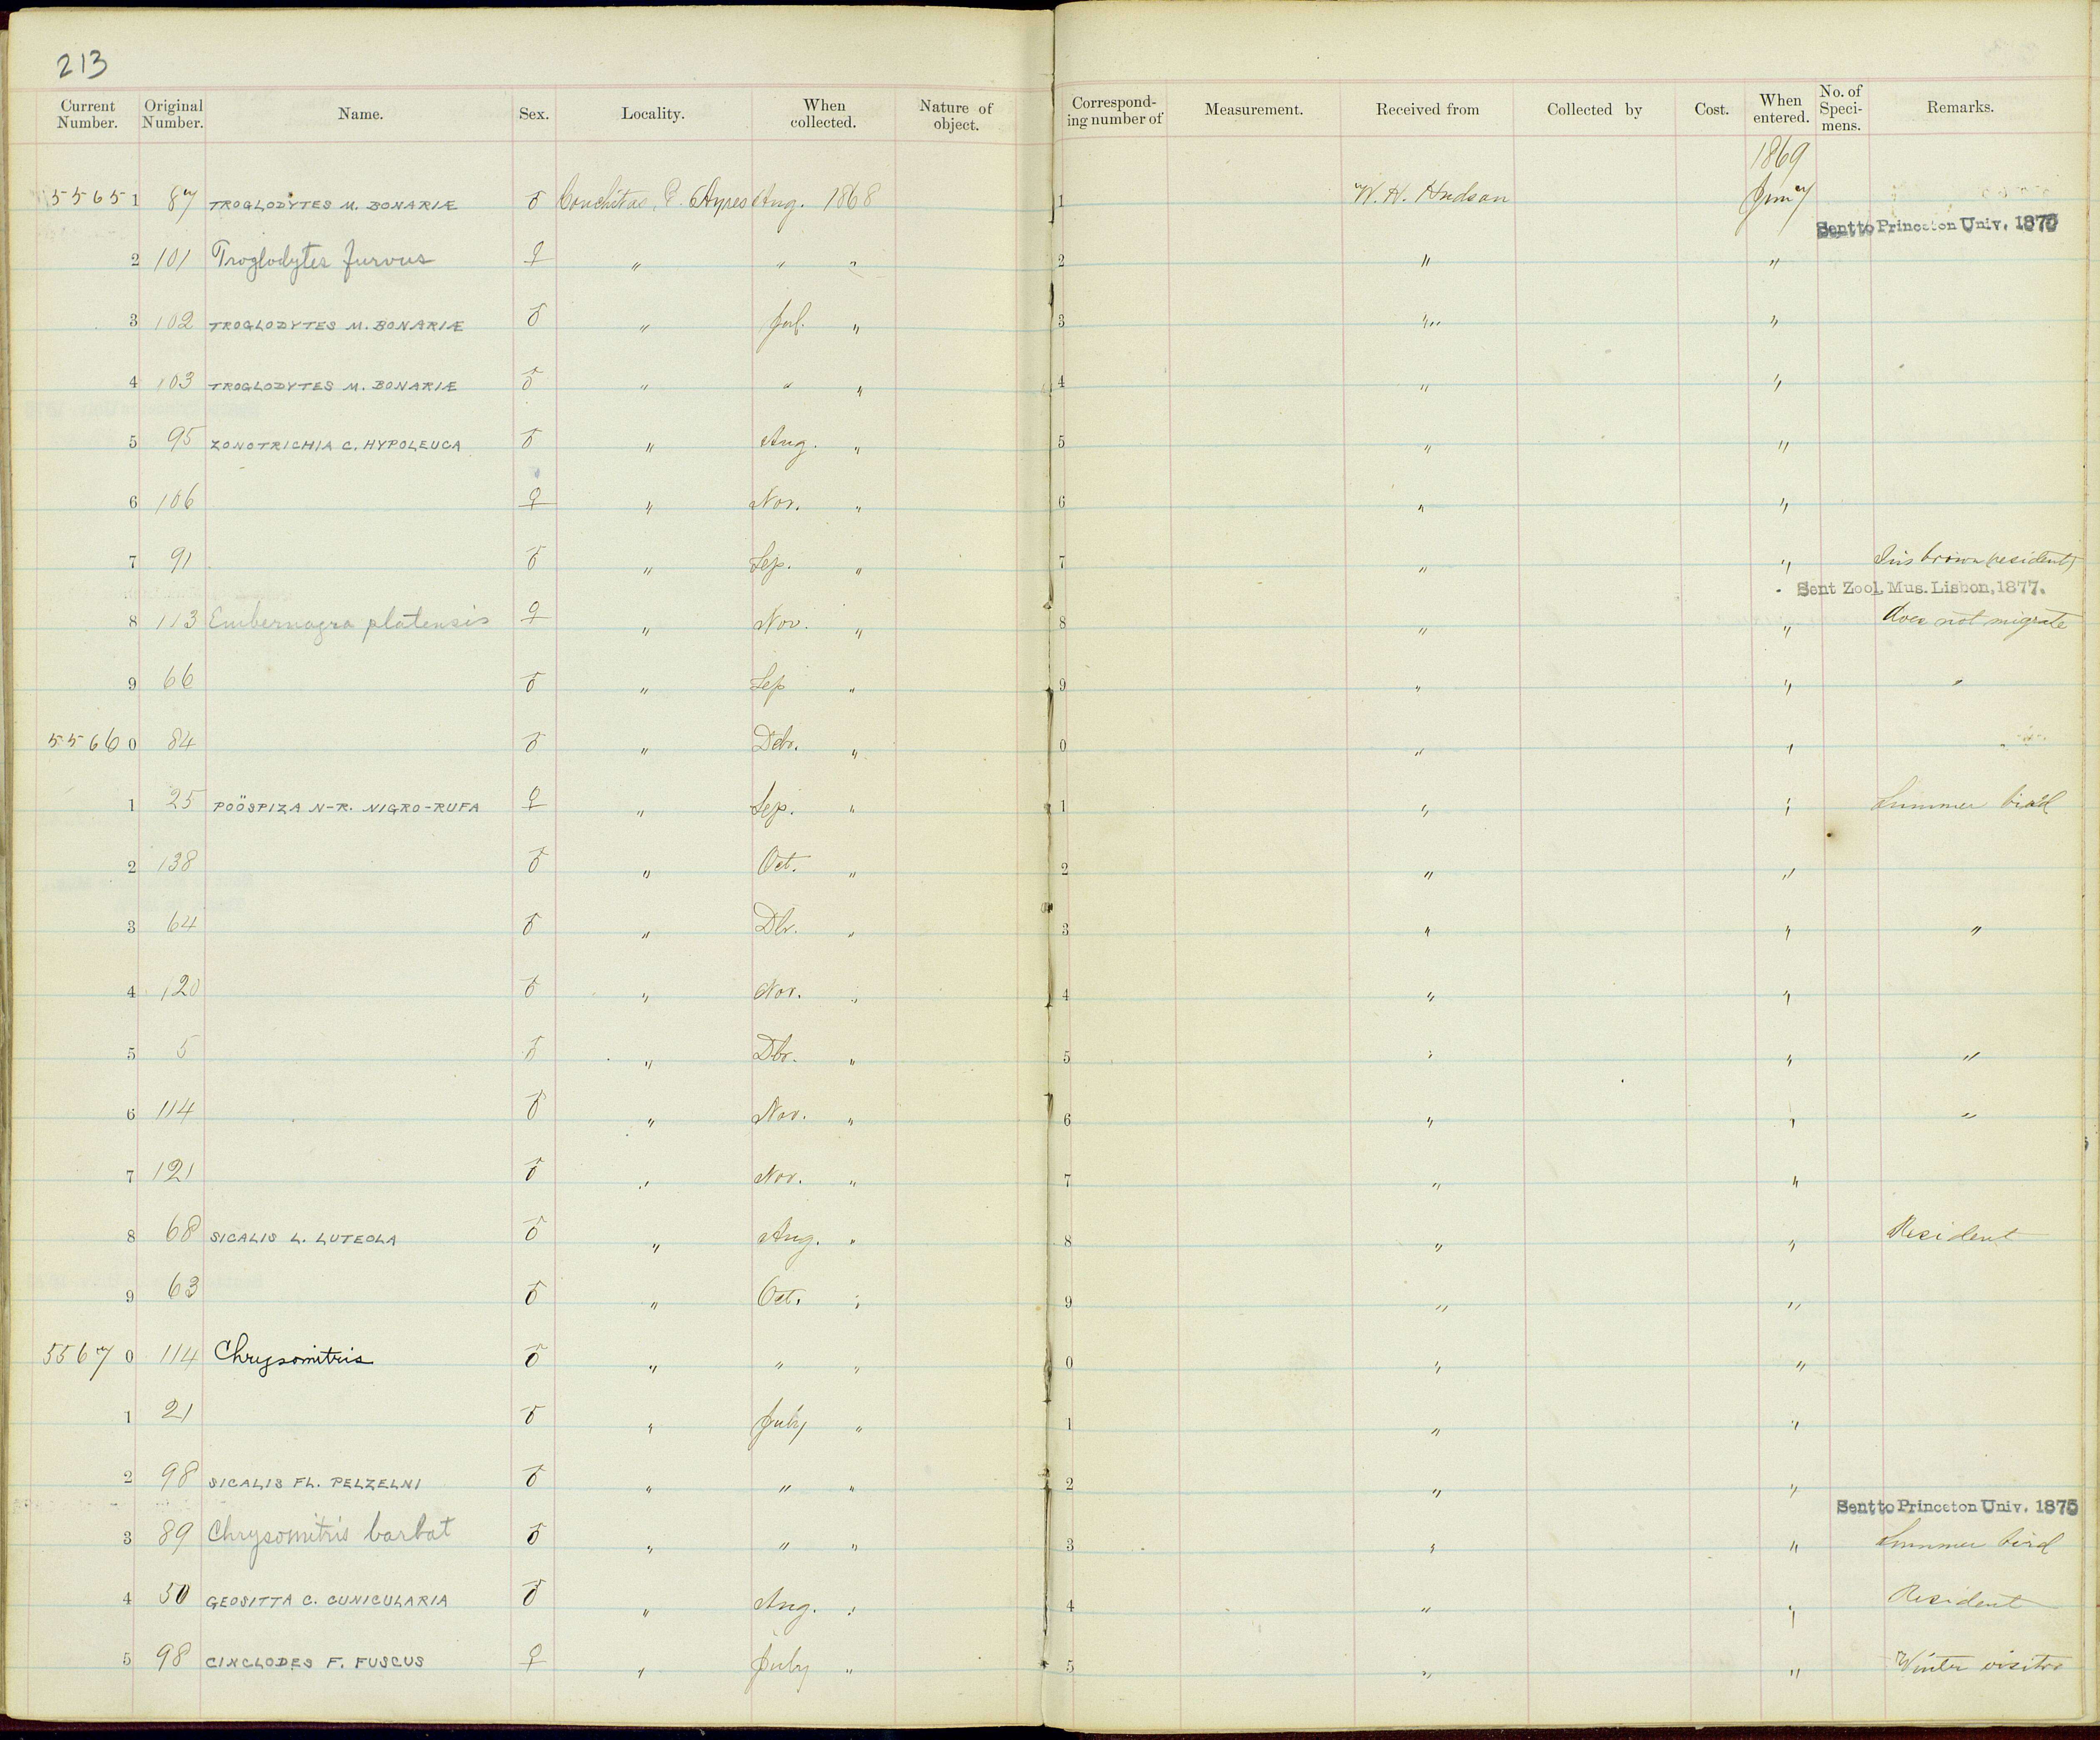 213
Current Number. Original Number. Name. Sex. Locality. When collected. Nature of object. Corresponding number of Measurement. Received from Collected by Cost. When entered. No. of Specimens. Remarks.
1869
55651 87 TROGLODYTES M. BONARIÆ ♂ Conchitas, B. Ayres Aug. 1868 1 W. H. Hudson
Sent to Princeton Univ. 1878
2 101 Troglodytes furvus ♀ " " " 2 " "
3 102 TROGLODYTES M. BONARIÆ ♂ " " 3 " "
4 103 TROGLODYTES M. BONARIÆ ♂ " " " 4 " "
5 95 ZONOTRICHIA C. HYPOLEUCA ♂ " Aug. " 5 " "
6 106 ♀ " Nov. " 6 " "
7 91 ♂ " Sep. " 7 " " Iris brown (resident)
Sent Zool. Mus. Lisbon, 1877.
8 113 Embernagra platensis ♀ " Nov. " 8 " " does not migrate
9 66 ♂ " Sep " 9 " " "
55660 84 ♂ " Dbr. " 0 " " "
1 25 POÖSPIZA N-R. NIGRO-RUFA ♀ " Sep. " 1 " " Summer bird
2 138 ♂ " Oct. " 2 " "
3 64 ♂ " Dbr. " 3 " " "
4 120 ♂ " Nov. " 4 " "
5 5 ♂ " Dbr. " 5 " " "
6 114 ♂ " Nov. " 6 " " "
7 121 ♂ " Nov. " 7 " "
8 68 SICALIS L. LUTEOLA ♂ " Aug. " 8 " " Resident
9 63 ♂ " Oct. " 9 " "
55670 114 Chrysomitris ♂ " " " 0 " "
1 21 ♂ " July " 1 " "
2 98 SICALIS FL. PELZELNI ♂ " " " 2 " "
Sent to Princeton Univ. 1875
3 89 Chrysomitris barbat ♂ " " " 3 " " Summer bird
4 50 GEOSITTA C. CUNICULARIA ♂ " Aug. " 4 " " Resident
5 98 CINCLODES F. FUSCUS ♀ " July " 5 " " Winter visitor